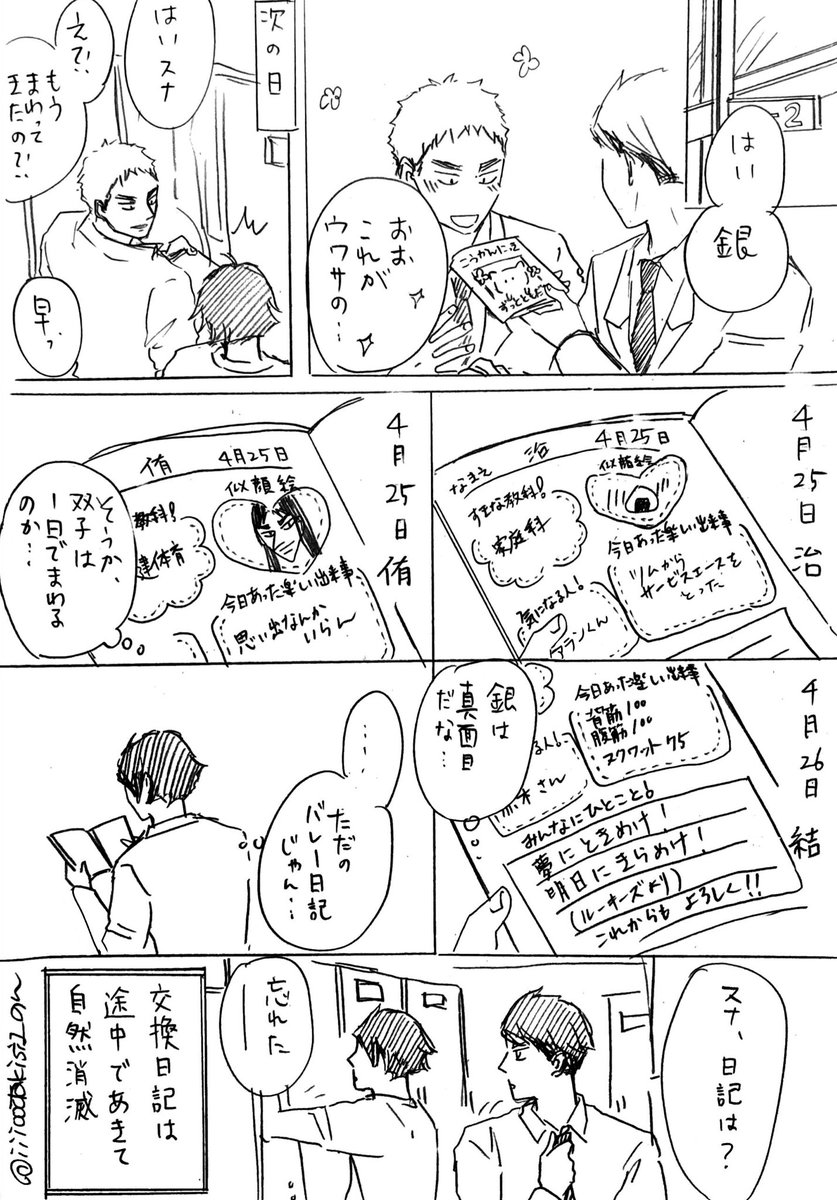 はい
銀
-2
こうかんにっき
ずっとともだち
おお、
これが
ウワサの…
次の日
はいスナ
え?!
もう
まわって
きたの?!
早っ
4月25日 治
なまえ 治 4月25日
すきな教科!
家庭科
似顔絵
今日あった楽しい出来事
ツムから
サービスエースを
とった
気になる人!
アランくん
4月25日 侑
侑 4月25日
教科!
体育
似顔絵
今日あった楽しい出来事
思い出なんか
いらん
そうか、
双子は
1日でまわる
のか…
4月26日 結
今日あった楽しい出来事
背筋100
腹筋100
スクワット75
る人!
木さん
みんなにひとこと!
夢にときめけ!
明日にきらめけ!
(ルーキーズより)
これからもよろしく!!
銀は
真面目
だな…
……
ただの
バレー日記
じゃん…
スナ、日記は?
忘れた
交換日記は
途中であきて
自然消滅